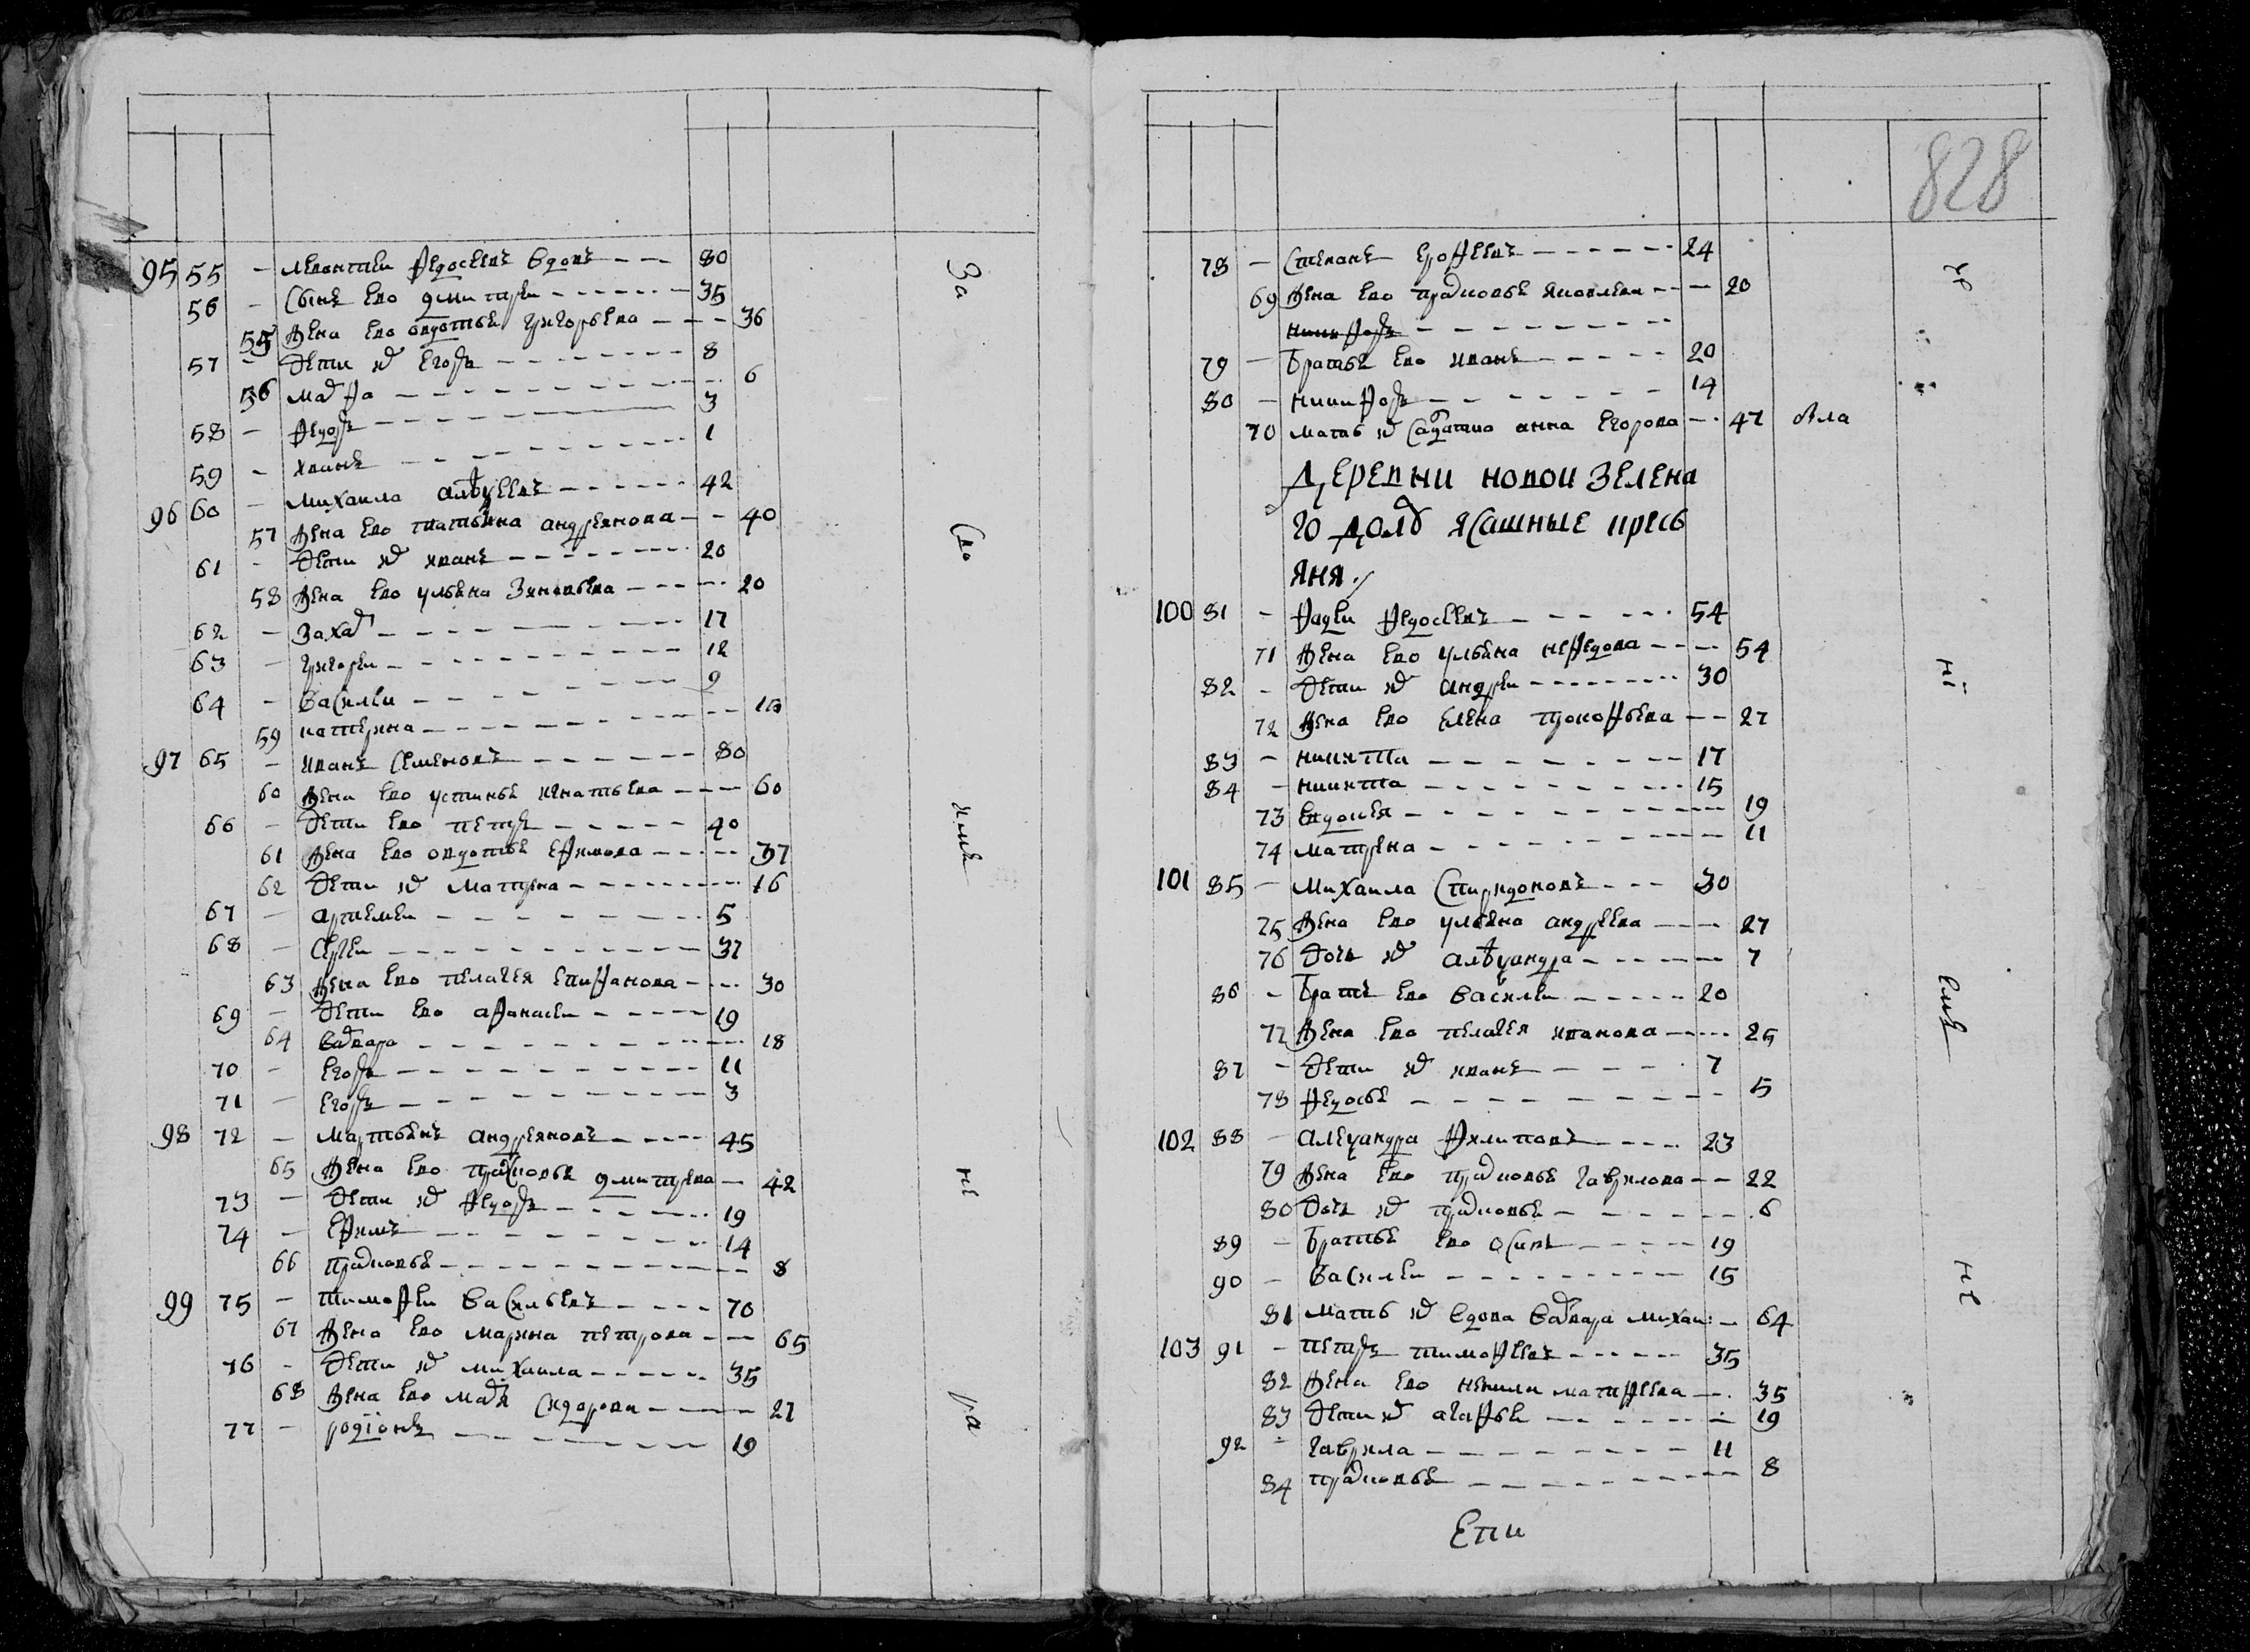 95 55 - Леонтеи Федосеевъ вдовъ - - - 80
56 - Сынъ ево дмитреи - - - 35
55 Жена ево овдотья григорьева - - - 36
57 - Дети их Егоръ - - - 8
56 марфа - - - 6
58 - Федоръ - - - 3
59 - Иванъ - - - 1
96 60 - михаила алексеевъ - - - 42
57 Жена ево татьяна андреянова - - 40
61 - Дети их иванъ - - - 20
58 Жена ево ульяна Зиновьева - - - 20
62 - Захар - - - 17
63 - григореи - - - 12
64 - василеи - - - 9
59 катерина - - - 10
97 65 - иванъ Семеновъ - - - 80
60 Жена ево устинья игнатьева - - - 60
66 - Дети ево петръ - - - 40
61 Жена ево овдотья ефимова - - - 37
62 Дети их матрена - - - 16
67 - артемеи - - - 5
68 - Сергеи - - - 37
63 Жена ево пелагея епифанова - - - 30
69 - Дети ево афанасеи - - - 19
64 варвара - - - 18
70 - Егоръ - - - 11
71 - Егоръ - - - 3
98 72 - мартьянъ андреяновъ - - - 45
65 Жена ево прасковья дмитрева - 42
73 - Дети их Федоръ - - - 19
74 - Ефимъ - - - 14
66 прасковья - - - 8
99 75 - тимофеи васильевъ - - - 70
67 Жена ево марина петрова - - 65
76 - Дети их михаила - - - 35
68 Жена ево марья Сидорова - - - 27
77 - родіонъ - - - 19
За
Сво
имя
не
ра
828
78 - Степанъ ерофеевъ - - - 24
69 Жена ево прасковья яковлева - - 20
никифоръ - - -
79 - Братья ево иванъ - - - 20
80 - никифоръ - - - 14
70 мать их Салдатка анна Егорова - 47
Деревни новои Зелена
го долу ясашные кресь
яня
100 81 - Фадеи Федосеевъ - - - 54
71 Жена ево ульяна нефедова - - - 54
82 - Дети их андреи - - - 30
72 Жена ево Елена прокофьева - - 27
83 - никита - - - 17
84 - никита - - - 15
73 Евдокея - - - 19
74 матрена - - - 11
101 85 - Михаила Спиридоновъ - - - 30
75 Жена ево ульяна андреева - - - 27
76 Дочь их александра - - - 7
86 - Братъ ево василеи - - - 20
77 Жена ево пелагея иванова - - - 25
87 - Дети их иванъ - - - 7
78 Федосья - - - 5
102 88 - Александра Филиповъ - - - 23
79 Жена ево прасковья гаврилова - - 22
80 Дочь их прасковья - - - 6
89 - Братья ево осипъ - - - 19
90 - василеи - - - 15
81 мать их вдова варвара михаи: - 64
103 91 - петръ тимофеевъ - - - 35
82 Жена ево ненила матфеева - - 35
83 Дети их агафья - - - 19
92 - гаврила - - - 11
84 прасковья - - - 8
Епи